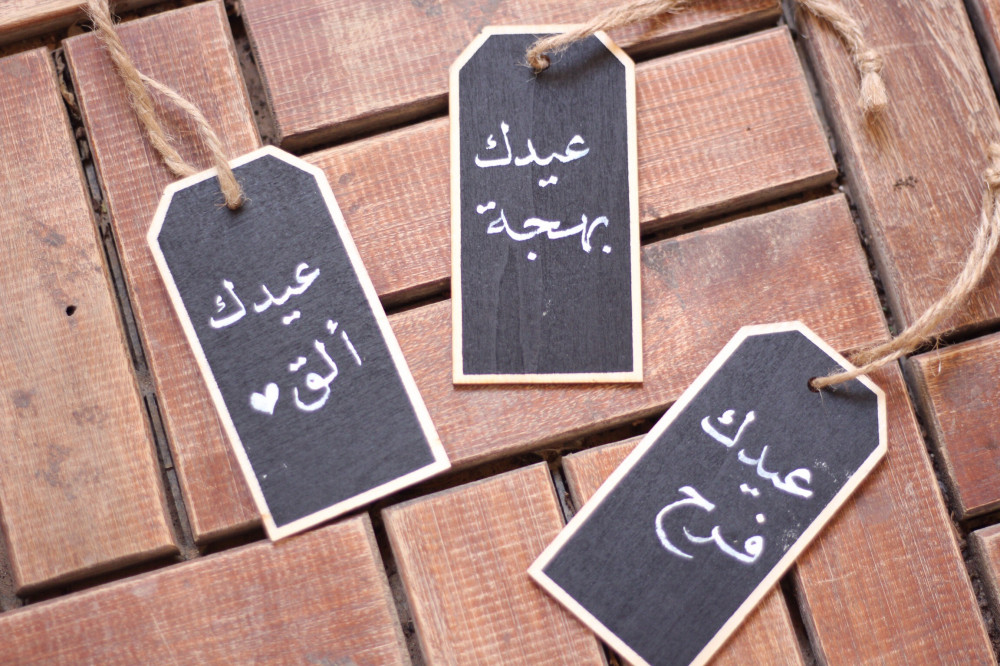 عيدك
بهجة
عيدك
ألق
عيدك
فرح